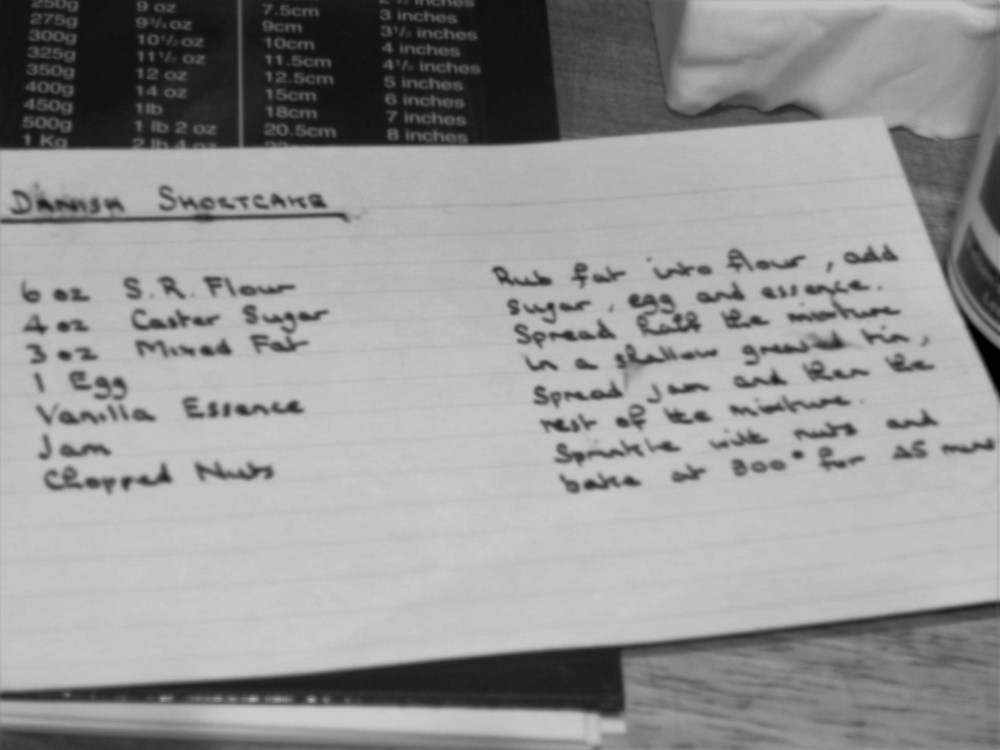 250g 9 oz 7.5cm 3 inches
275g 9¾ oz 9cm 3½ inches
300g 10½ oz 10cm 4 inches
325g 11½ oz 11.5cm 4½ inches
350g 12 oz 12.5cm 5 inches
400g 14 oz 15cm 6 inches
450g 1lb 18cm 7 inches
500g 1 lb 2 oz 20.5cm 8 inches
1 Kg 2 lb 4 oz
DANISH SHORTCAKE
6 oz S.R. Flour
4 oz Caster Sugar
3 oz Mixed Fat
1 Egg
Vanilla Essence
Jam
Chopped Nuts
Rub fat into flour, add
sugar, egg and essence.
Spread half the mixture
in a shallow greased tin,
Spread jam and then the
rest of the mixture.
Sprinkle with nuts and
bake at 300° for 45 mins